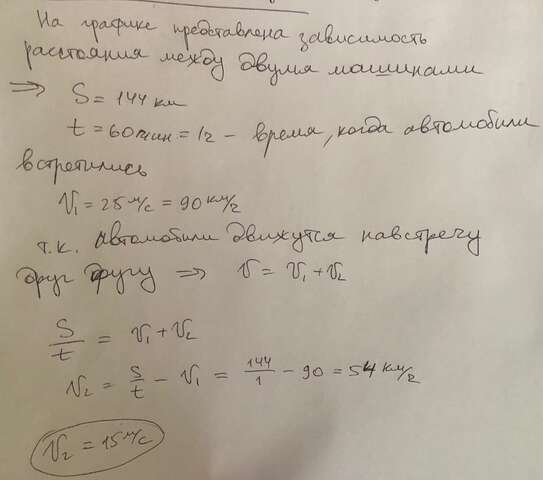 На графике представлена зависимость
расстояния между двумя машинами
=> S = 144 км
t = 60 мин = 1 ч - время, когда автомобили
встретились
V₁ = 25 м/с = 90 км/ч
т.к. автомобили движутся навстречу
друг другу => V = V₁ + V₂
S/t = V₁ + V₂
V₂ = S/t - V₁ = 144/1 - 90 = 54 км/ч
V₂ = 15 м/с